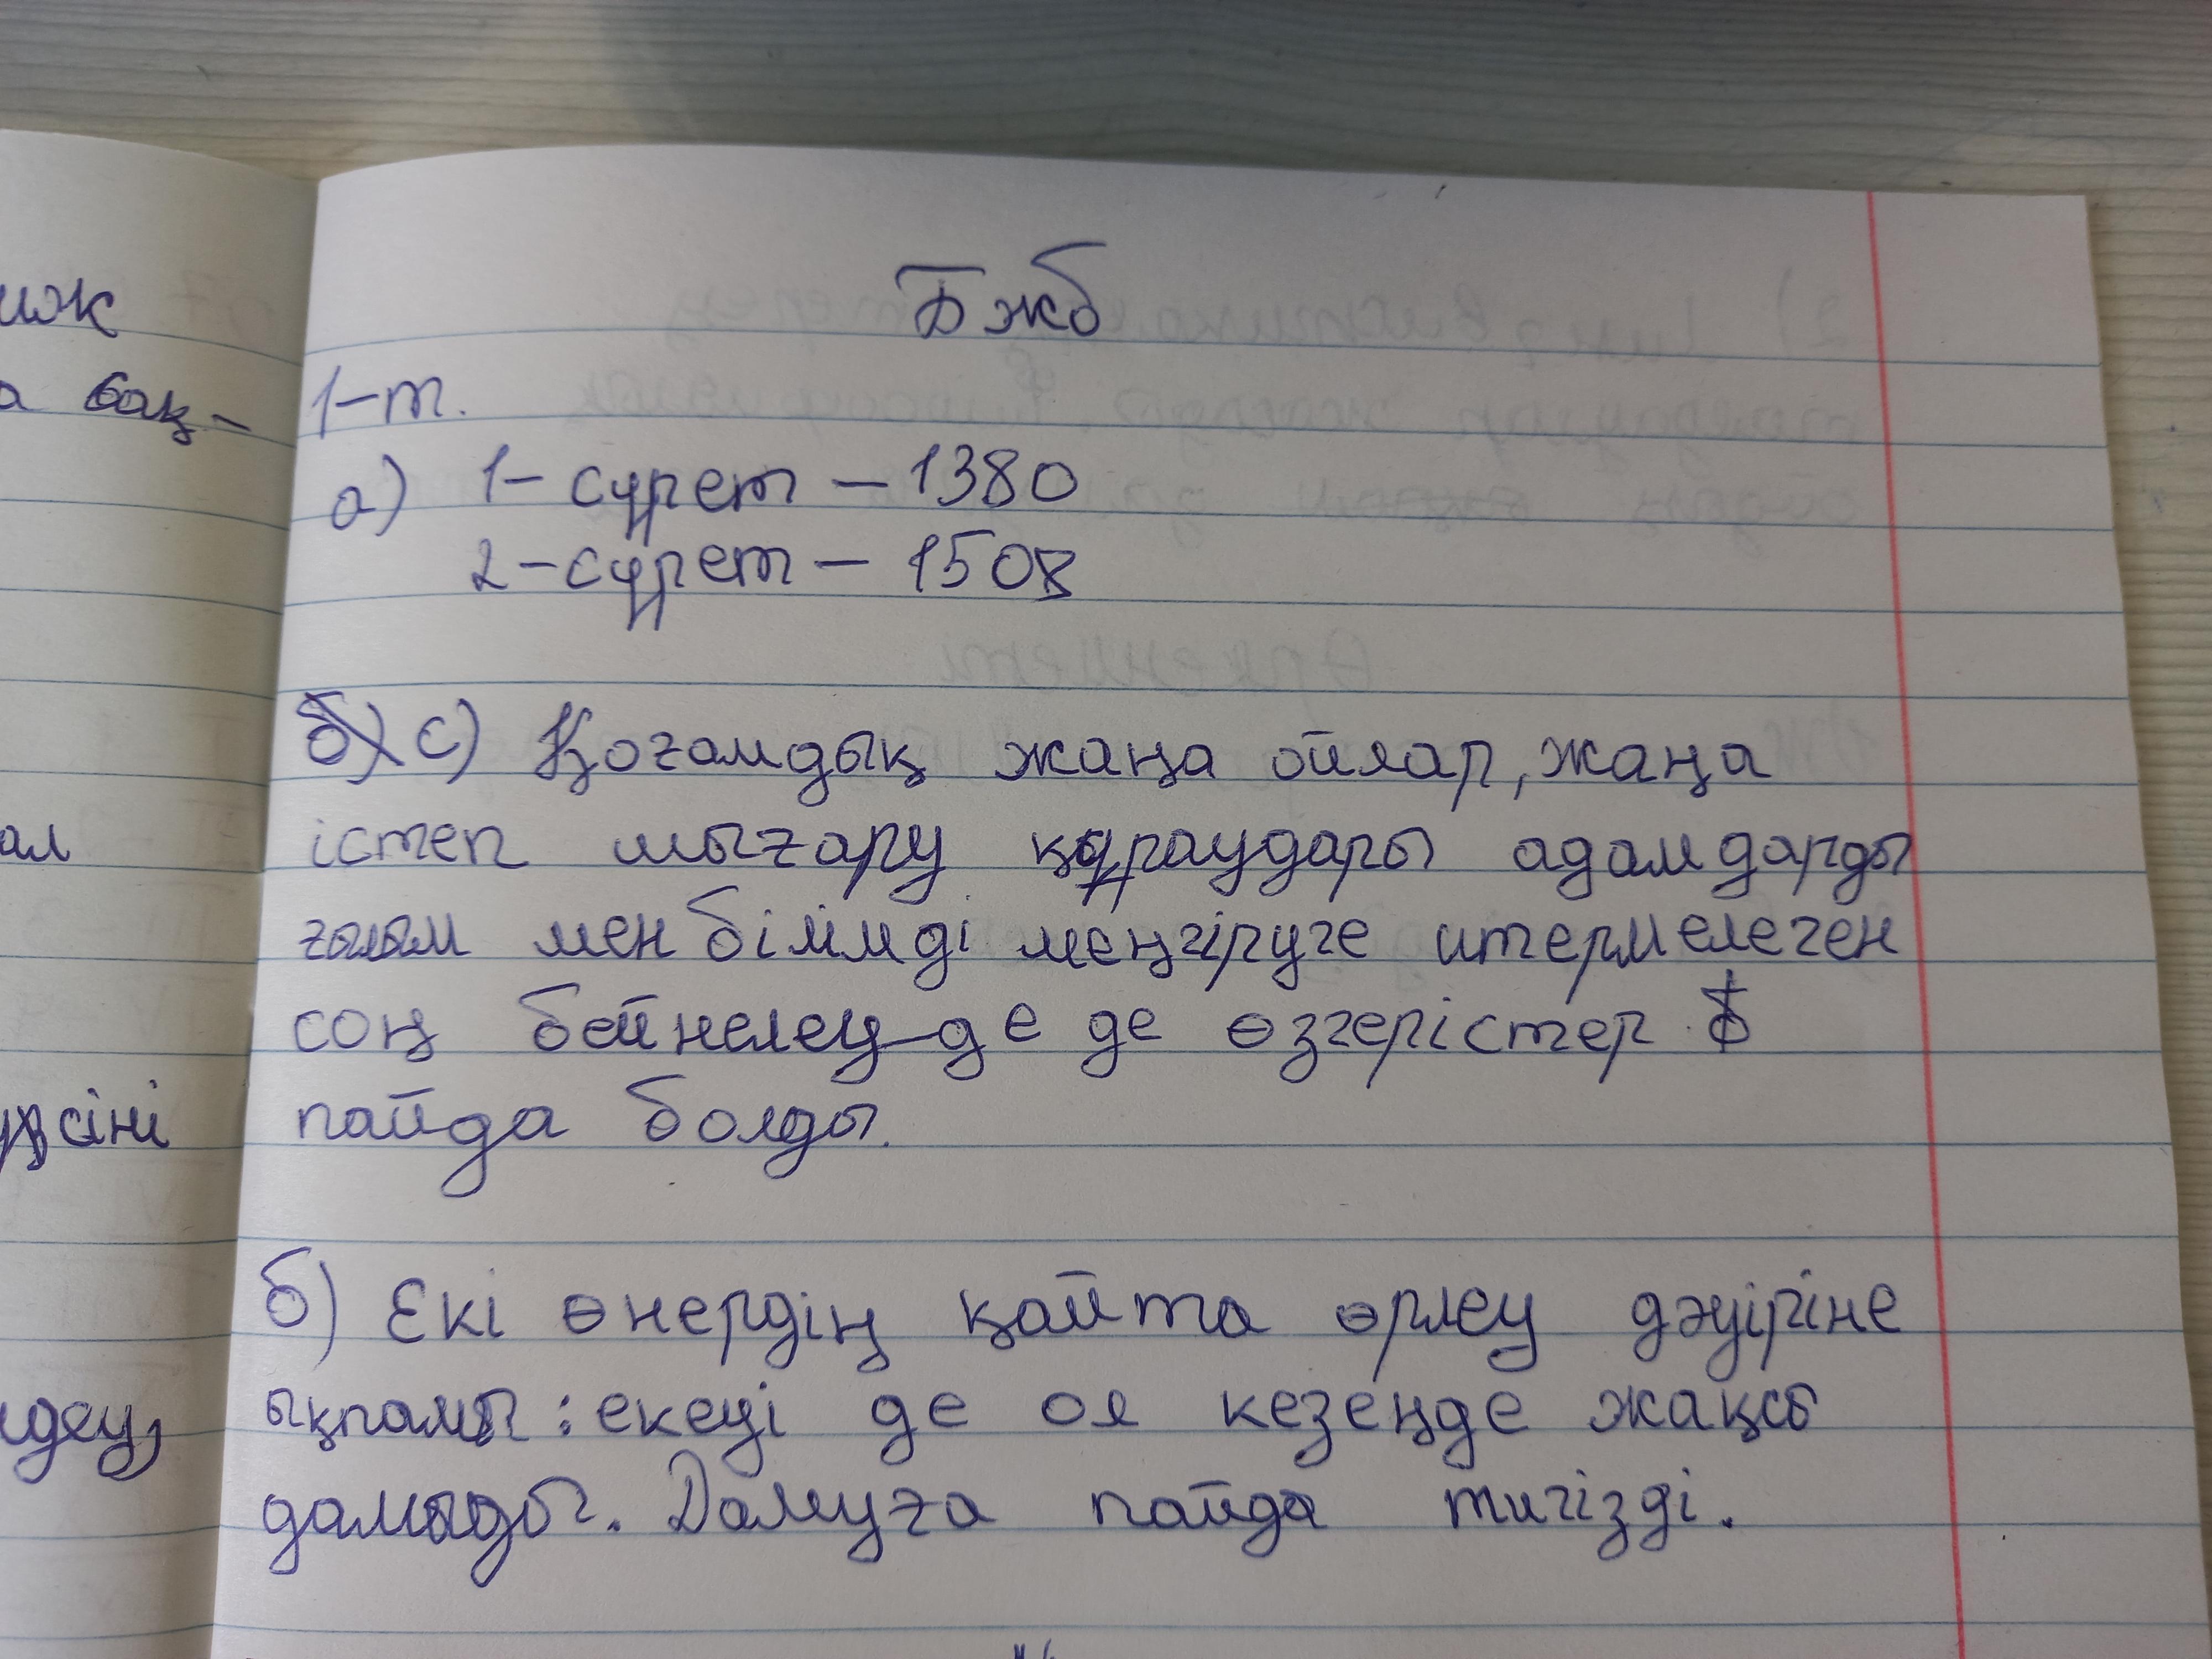 Бжб
1-т.
а) 1-сурет – 1380
2-сурет – 1508
с) Қоғамдық жаңа ойлар, жаңа
істеп шығару құраудары адамдарды
ғылым мен білімді меңгіруге итермелеген
соң бейнелеу-де де өзгерістер
пайда болды.
б) Екі өнердің қайта өрлеу дәуіріне
ықпалы: екеуі де ол кезеңде жақсы
дамыды. Дамуға пайда тигізді.